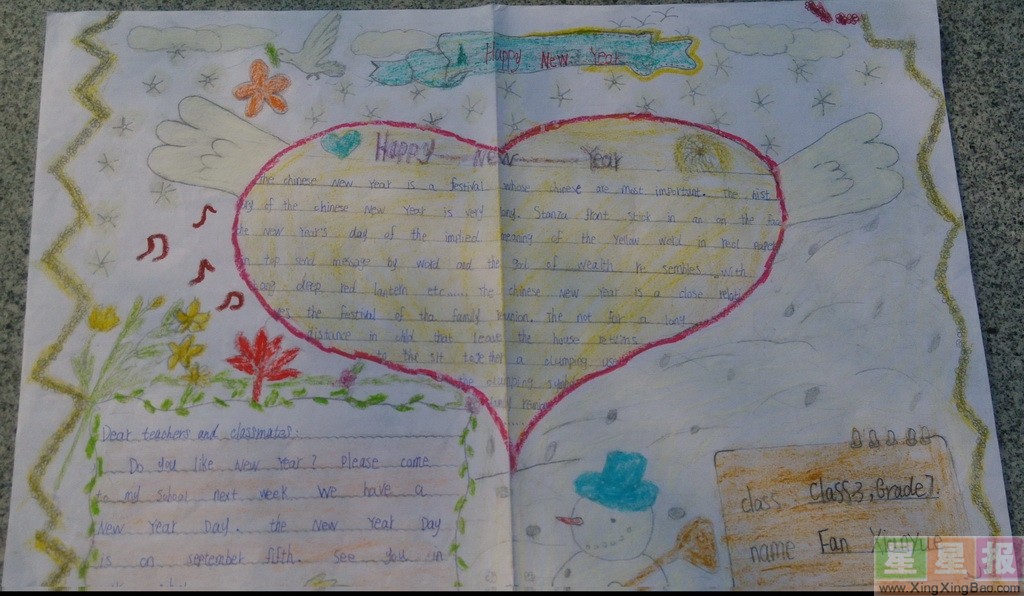 Happy New Year
Happy New Year
the chinese New Year is a festival whose chinese are most important. The hist
ry of the chinese New Year is very long. Stanza front stick in an on the
the New Year's day of the implied meaning of the Yellow Wold in red paper
top send message by word and the god of wealth sembles with
deep red lantern etc...... The chinese new Year is a close
the festival of tha family reunion. The not for a long
distance in child that least the house returns
to the sit together a olumping
the olumping
Dear teachers and classmates:
Do you like New Year? Please come
to my school next week We have a
New Year Day. the New Year Day
is on september fifth. See you in
class Class3,Grade7.
name Fan Yinyue
星星报
www.XingXingBao.com